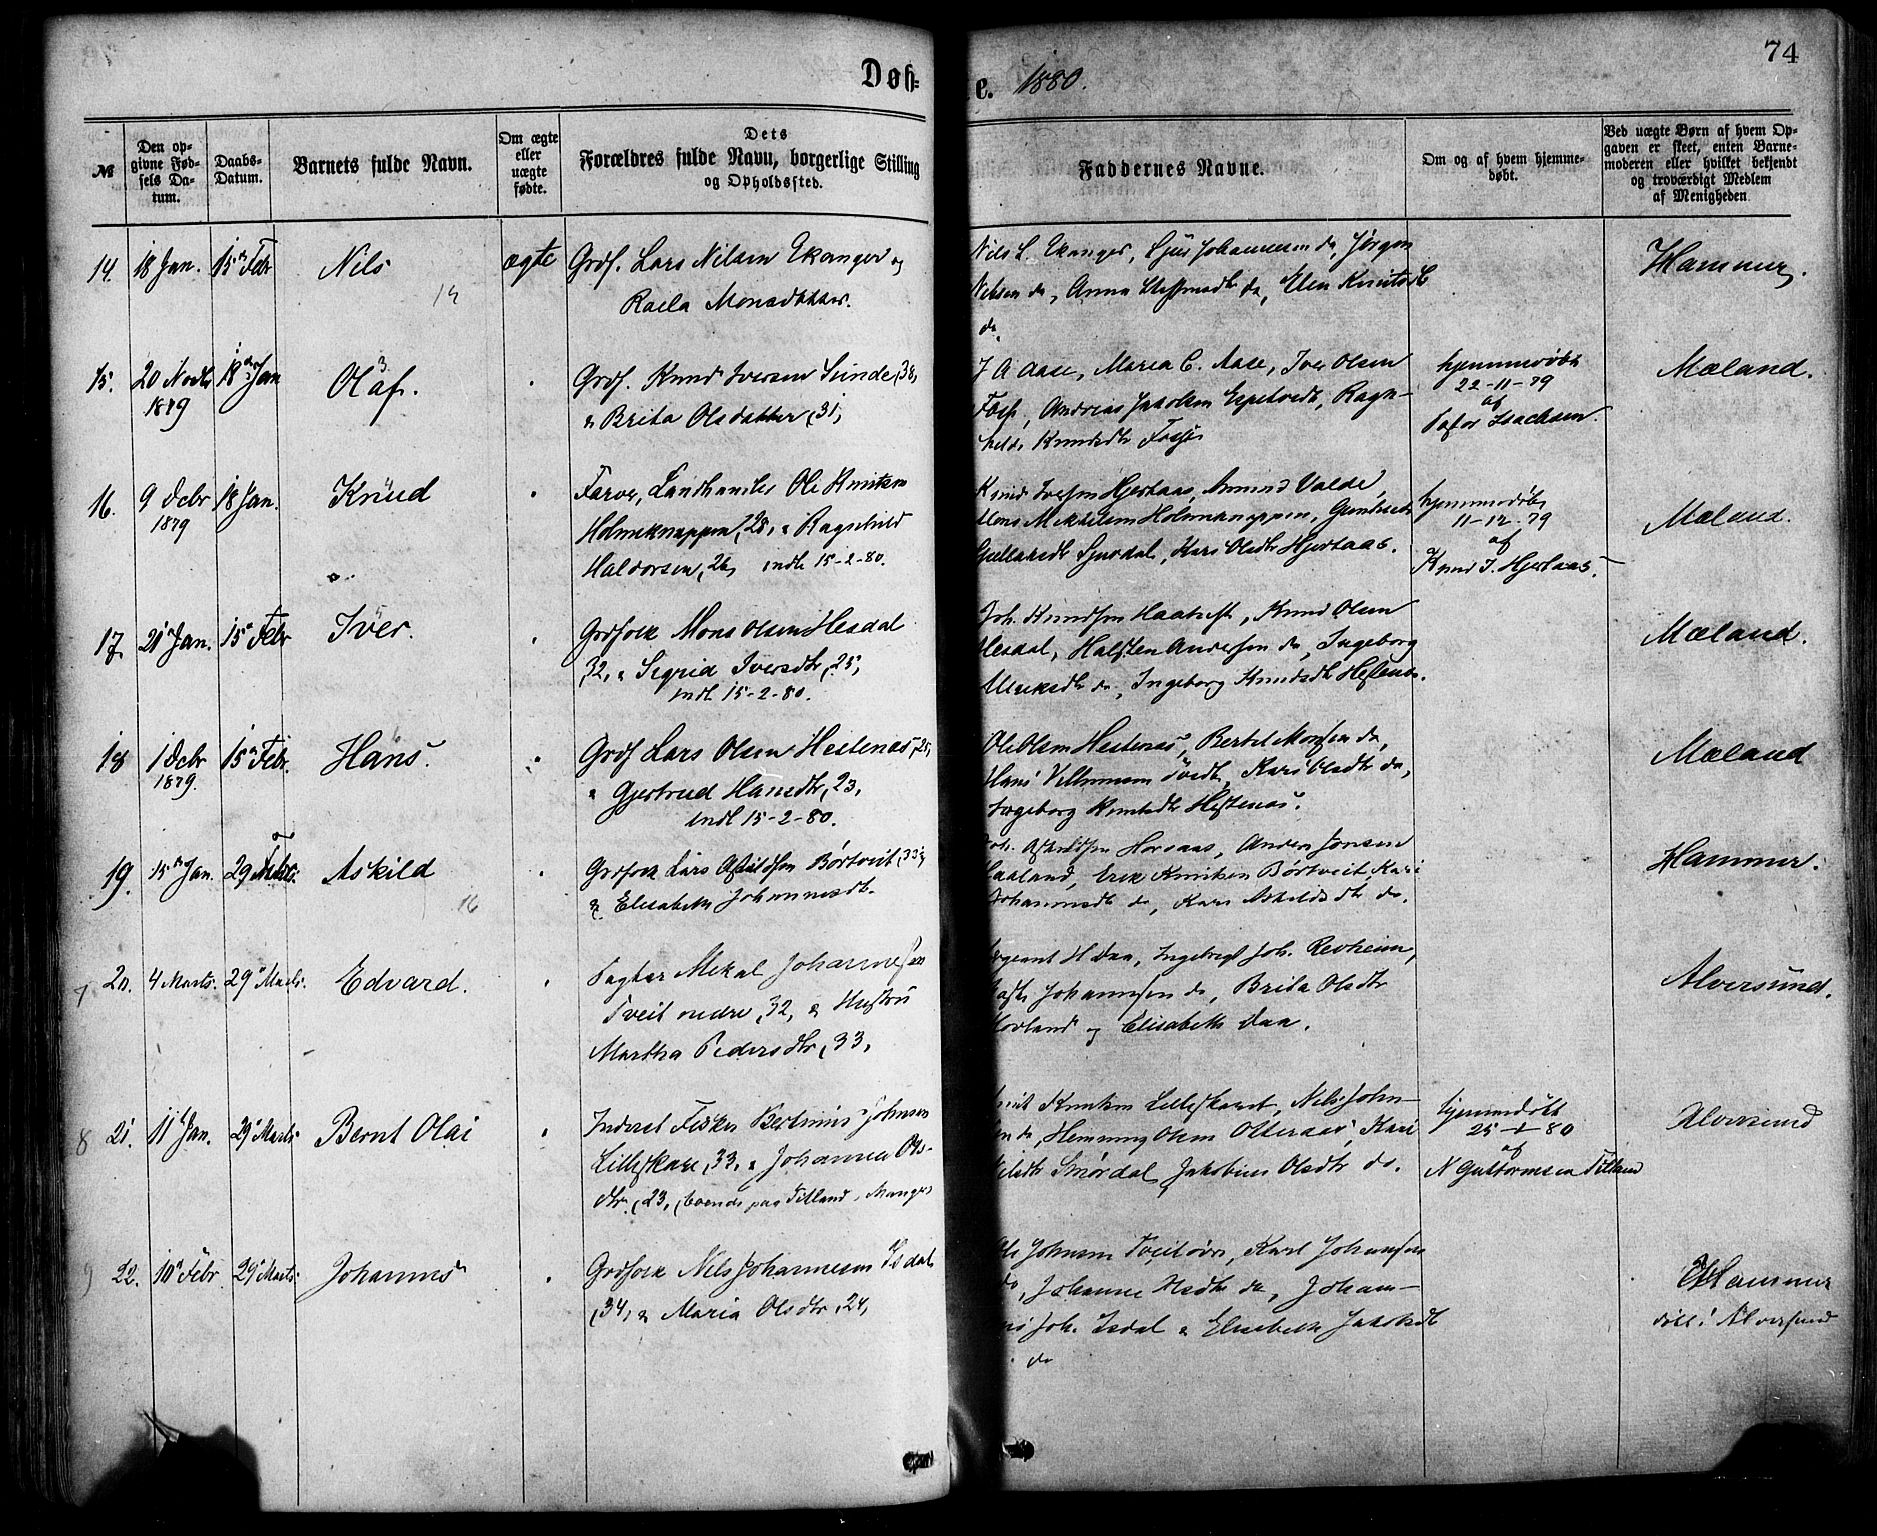 74
Døb-
e. 1880.
№
Den op-
givne Fød-
sels Da-
tum.
Daabs-
Datum.
Barnets fulde Navn.
Om ægte
eller
uægte
fødte.
Dets
Forældres fulde Navn, borgerlige Stilling
og Opholdssted.
Faddernes Navne.
Om og af hvem hjemme-
døbt.
Ved uægte Børn af hvem Op-
gaven er skeet, enten Barne-
moderen eller hvilket bekjendt
og troværdigt Medlem
af Menigheden.
14. 18 Jan. 15 Febr Nils ægte Grdf. Lars Nilsen Ekanger og
Raela Monsdatter.
Nils L. Ekanger, Sjur Johannesen do, Jørgen
Nilsen do, Anna do, Elen Knutsdt
do
Hammer.
15. 20 Novbr 18 Jan Olaf. Grdf. Knud Iversen Sunde, 38,
1879
& Brita Olsdatter, 31,
J A Aase, Maria C. Aase, Iver Olsen
Fosse, Andreas Jakobsen Espetvedt, Ragn-
hilde Knudsdtr Fosse
hjemmedøbt
22-11-79
af
Pastor Isachsen.
Mæland.
16. 9 Decbr 18 Jan. Knud Farver, Landhandler Ole Knutsen
1879
Holmeknappen, 28, & Ragnhild
Haldorsen, 26, indl 15-2-80.
Knud Iversen Hjertaas, Amund Valde,
Mons Mikkelsen Holmeknappen,
Kari Olsdtr Hjertaas.
hjemmedøbt
11-12-79
af
Knud I. Hjertaas.
Mæland.
17. 21 Jan. 15 Febr Iver. Grdfolk Mons Olsen Hesdal
32, & Sigrid Iversdtr, 25,
indl 15-2-80.
Joh. Knudsen, Knud Olsen
Hesdal, Halsten Andersen do, Ingeborg
do, Ingeborg Knudsdtr Hestenes.
Mæland.
18 1 Decbr 15 Febr. Hans. Grdf Lars Olsen Hestenes, 25,
1879.
& Gjertrud Hansdtr, 23,
indl 15-2-80.
Ole Olsen Hestenes, Bertel Monsen do,
Hans Tvedt, Kari Olsdtr do,
Ingeborg Knutsdtr Hestenes.
Mæland
19. 15 Jan. 29 Febr. Askild Grdfolk Lars Askildsen Børtveit, 33½
16
& Elisabeth Johannesdt.
Joh. Askildsen Hopsaas, Anders Jonsen
Haaland, Erik Knutsen Børtveit, Kari
Johannesdt do, Kari Askildsdtr do.
Hammer.
7 20. 4 Marts. 29 Marts. Edvard. Pagtar Mikal Johannesen
Tveit nedre, 32, & Hustru
Martha Pedersdtr, 33,
Sergeant H Daa, Ingebrigt Joh. Revheim,
Johannesen do, Brita Olsdtr
Hovland og Elisabeth Daa.
Alversund.
8 21. 11 Jan. 29 Marts Bernt Olai Inderst Fisker Bertinius Johnsen
Lilleskare, 33, & Johanna Ols-
dtr, 23, (boende paa Titland, Manger
Knut Knutsen Lilleskaret, Nils John-
sen do, Hemming Olsen Otteraas, Kari
Nilsdtr Smørdal, Jakobine Olsdtr do.
hjemmedøbt
25-1-80
af
N Guttormsen Titland
Alversund
9 22. 10 Febr 29 Marts Johannes Grdfolk Nils Johannesen Isdal
34, & Maria Olsdtr, 24,
Ole Johnsen Tveit øvre, Karl Johansen
do, Johanne do, Johan-
nes Joh. Isdal & Elisabeth Jakobsdtr
do
Hammer
døbt i Alversund